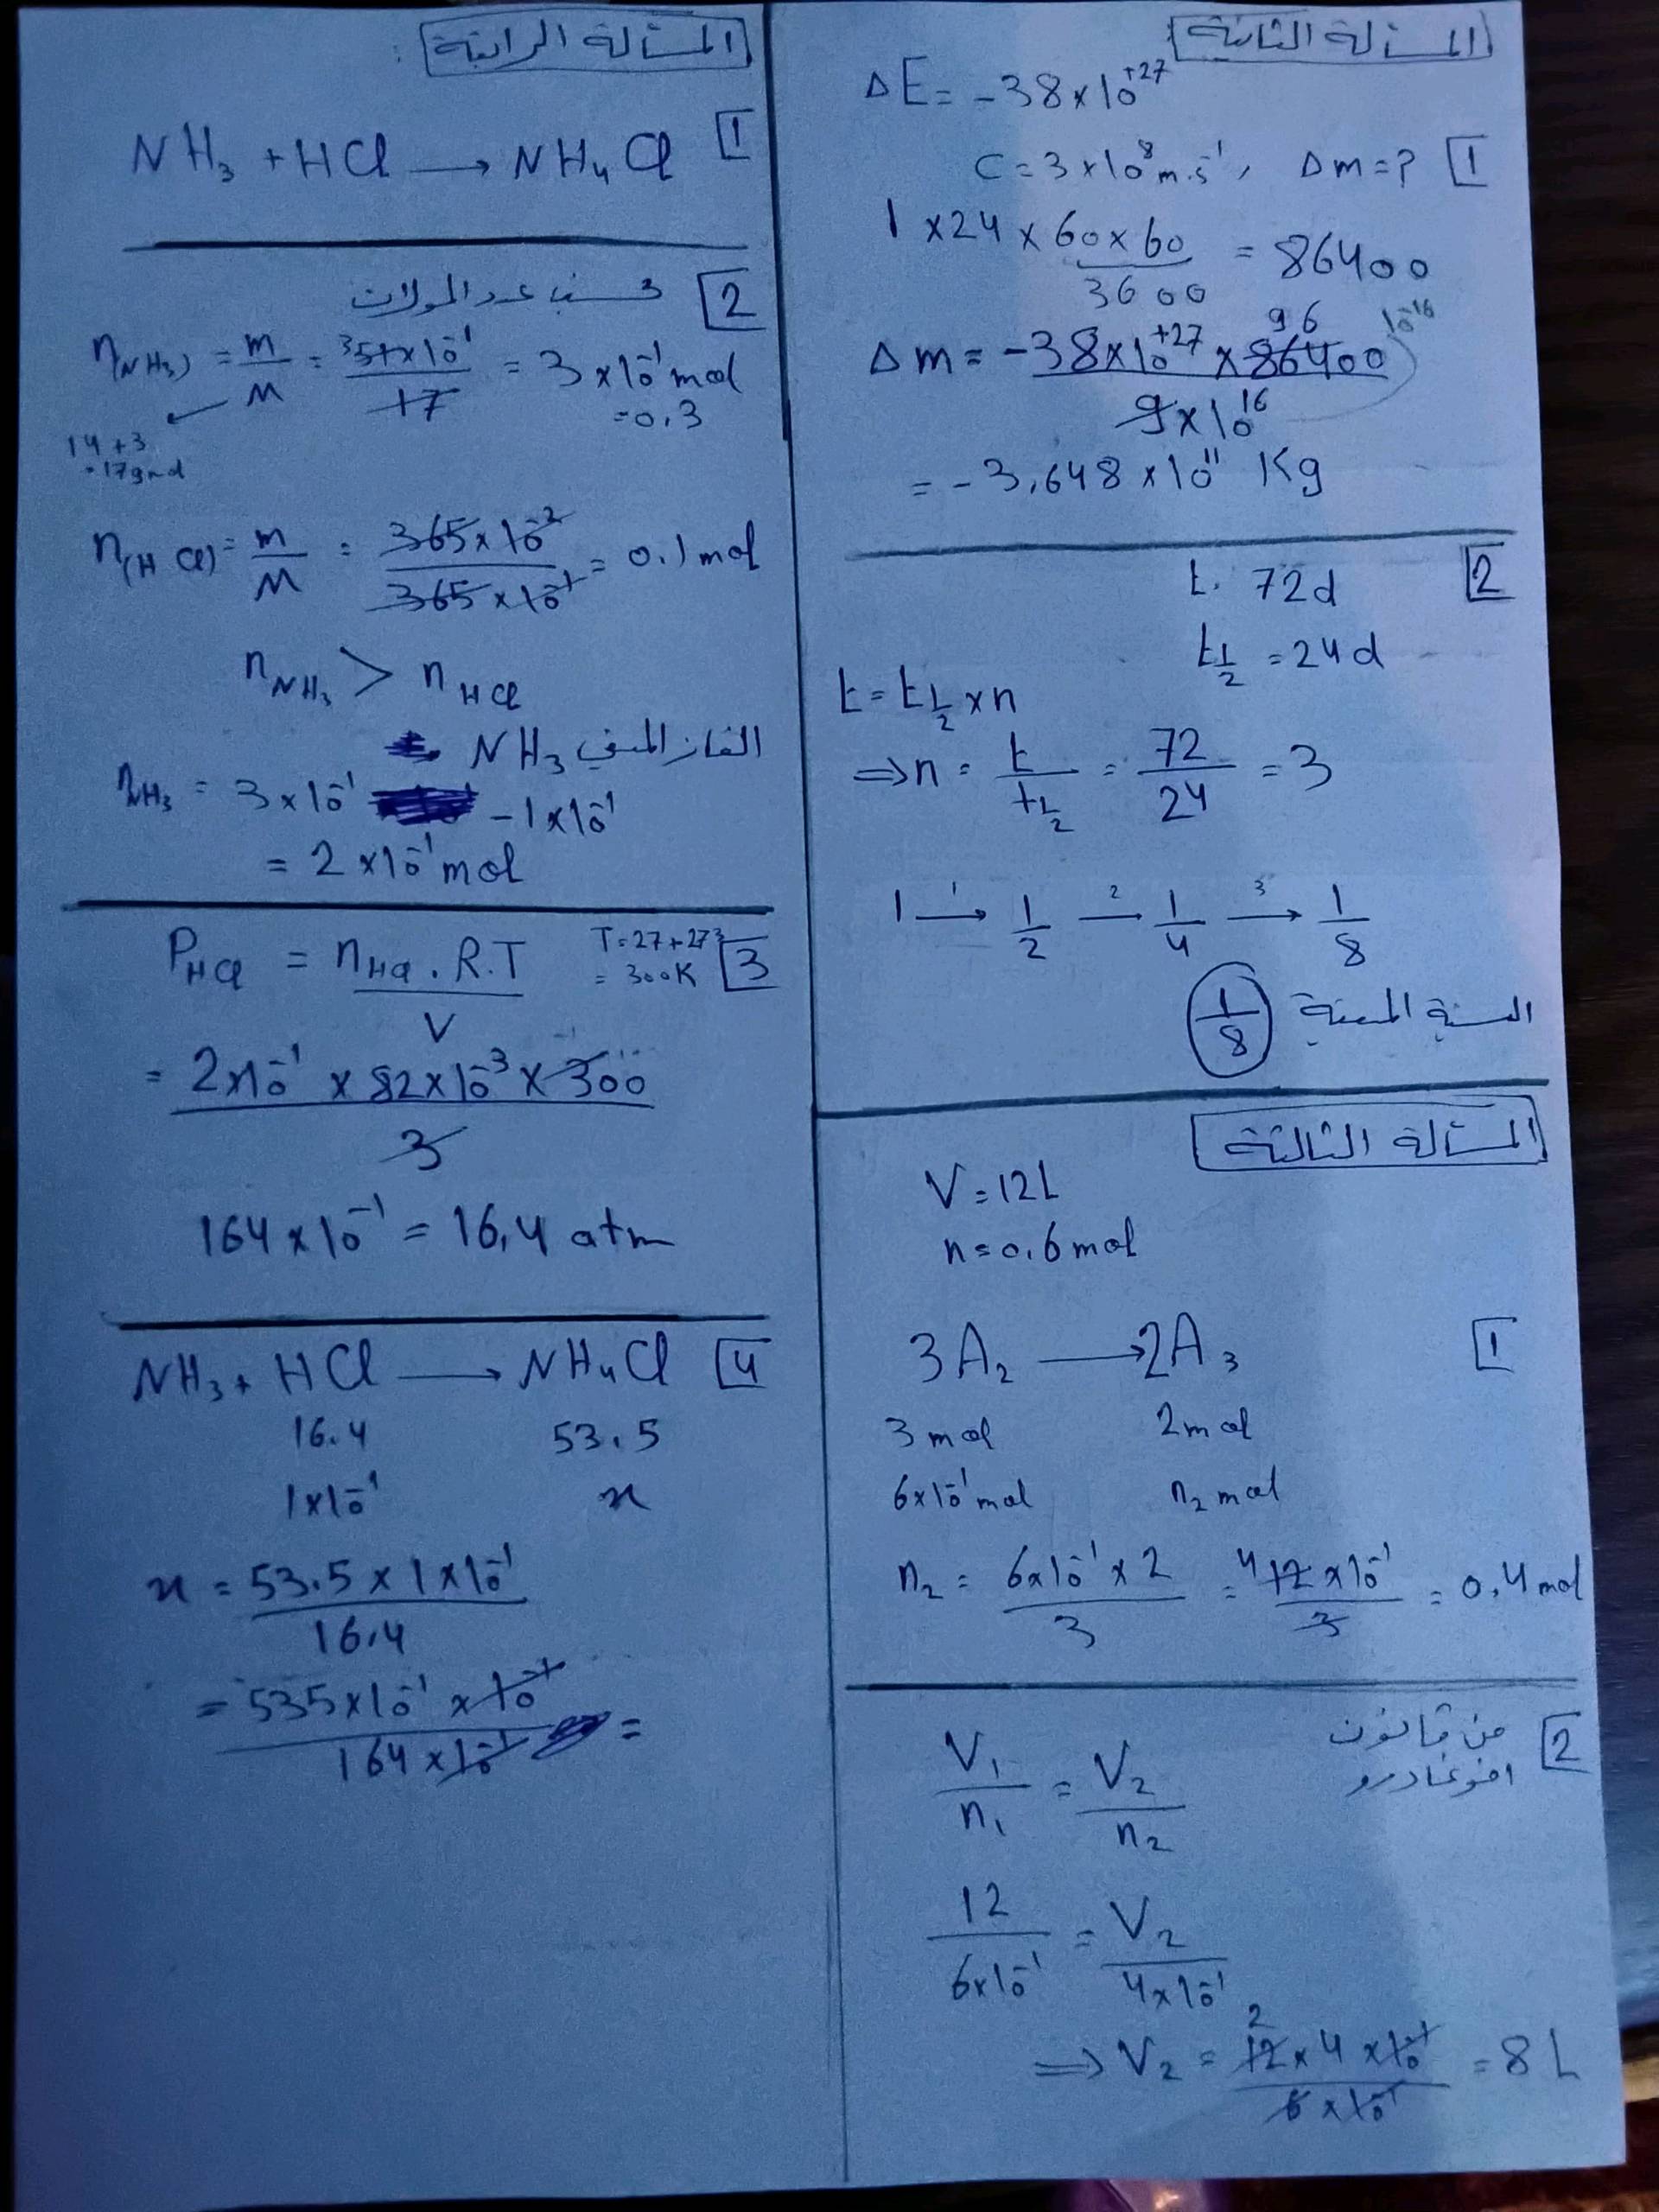 المسألة الثانية
ΔE = -38×10^{+27}
C = 3×10^8 m.s^{-1}, Δm = ? [1]
1 × 24 × 60 × 60 / 3600 = 86400
Δm = -38×10^{+27} × 86400 / 9×10^{16}
96
10^{-16}
= -3,648 × 10^{11} Kg
[2]
t. 72d
t_{1/2} = 24d
t = t_{1/2} × n
⇒ n = t / t_{1/2} = 72 / 24 = 3
1 →(1) 1/2 →(2) 1/4 →(3) 1/8
النسبة المتبقية 1/8
المسألة الثالثة
V = 12L
n = 0.6 mol
3A_2 → 2A_3 [1]
3 mol 2 mol
6×10^{-1} mol n_2 mol
n_2 = 6×10^{-1} × 2 / 3 = 4 12×10^{-1} / 3 = 0,4 mol
[2] من قانون
افوغادرو
V_1 / n_1 = V_2 / n_2
12 / 6×10^{-1} = V_2 / 4×10^{-1}
⇒ V_2 = 2 12 × 4 × 10^{-1} / 6 × 10^{-1} = 8 L
المسألة الرابعة :
NH_3 + HCl → NH_4Cl [1]
[2] نحسب عدد المولات
n_{(NH_3)} = m / M = 3 51×10^{-1} / 17 = 3×10^{-1} mol
= 0,3
14+3
= 17 g mol
n_{(HCl)} = m / M = 365×10^{-2} / 365×10^{-1} = 0.1 mol
n_{NH_3} > n_{HCl}
الغاز المتبقي NH_3
n_{NH_3} = 3×10^{-1} - 1×10^{-1}
= 2×10^{-1} mol
P_{HCl} = n_{HCl} . R.T / V
T = 27+273 [3]
= 300K
= 2×10^{-1} × 82×10^{-3} × 300 / 3
164×10^{-1} = 16,4 atm
NH_3 + HCl → NH_4Cl [4]
16.4 53.5
1×10^{-1} x
x = 53.5 × 1×10^{-1} / 16,4
= 535×10^{-1} × 10^{-1} / 164×10^{-1} =